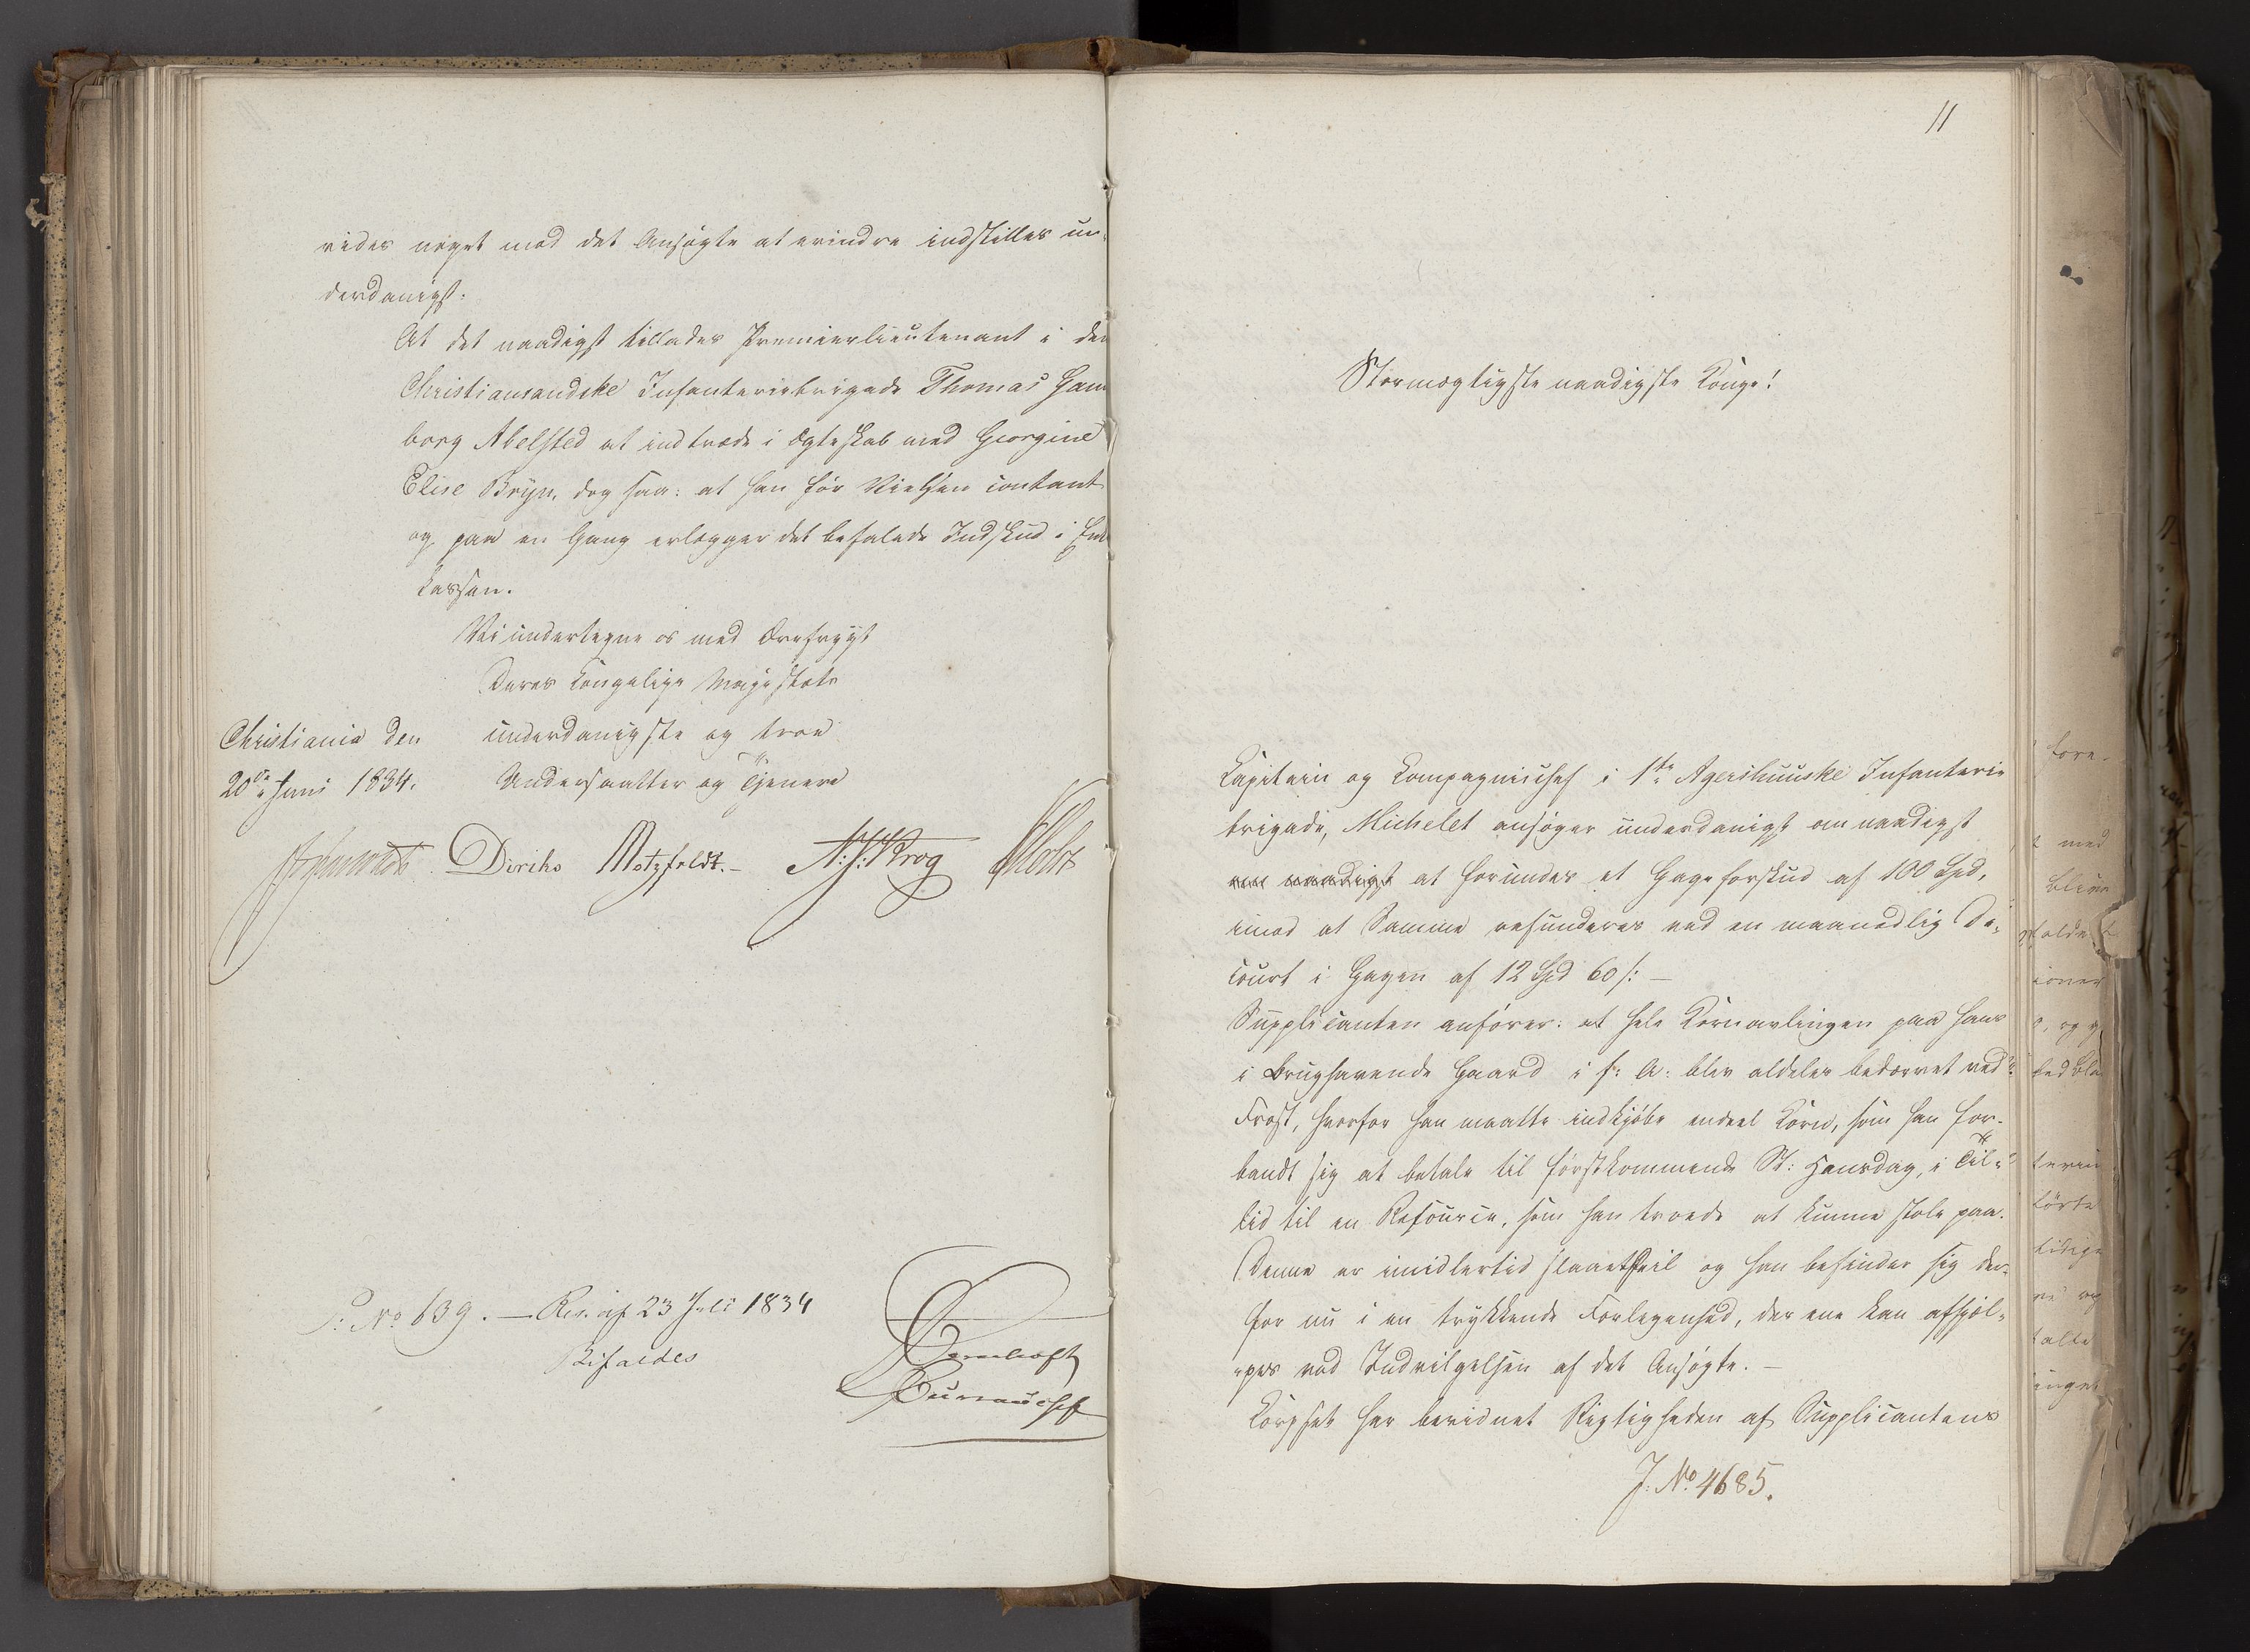 vides noget mod det Ansøgte at erindre indstilles un-
derdanigst:
At det naadigst tillades Premierlieutenant i den
Christiansandske Infanteriebrigade Thomas Ham
borg Abelsted at indtræde i Ægteskab med Georgine
Elise Bryn, dog saa: at han før Vielsen contant
og paa en Gang erlægger det befalede Indskud i Enke
kassen.
Vi undertegne os med Ærefrygt
Deres Kongelige Majestæts
Christiania den underdanigste og troe
20de Juni 1834. Undersaatter og Tjenere
Diriks Motzfeldt. Krog Holst
P: No 639. — Res. af 23 Juli 1834
Bifaldes
11
Stormægtigste naadigste Konge!
Capitain og Compagniechef i 1ste Agershuuske Infanterie
brigade, Michelet ansøger underdanigst om naadigst
om naadigst at forundes et Gageforskud af 100 Spd,
imod at Samme refunderes ved en maanedlig De-
court i Gagen af 12 Spd 60 s: —
Supplicanten anfører: at hele Kornavlingen paa hans
i Brughavende Gaard i f: A: blev aldeles bedærvet ved
Frost, hvorfor han maatte indkjøbe endeel Korn, som han for-
bandt sig at betale til førstkommende St: Hansdag, i Til-
lid til en Resource, som han troede at kunne stole paa.
Denne er imidlertid slaaet feil og han befinder sig der-
for nu i en trykkende Forlegenhed, der ene kan afhjæl-
pes ved Indvilgelsen af det Ansøgte. —
Corpset har bevidnet Rigtigheden af Supplicantens
J. No. 4685.